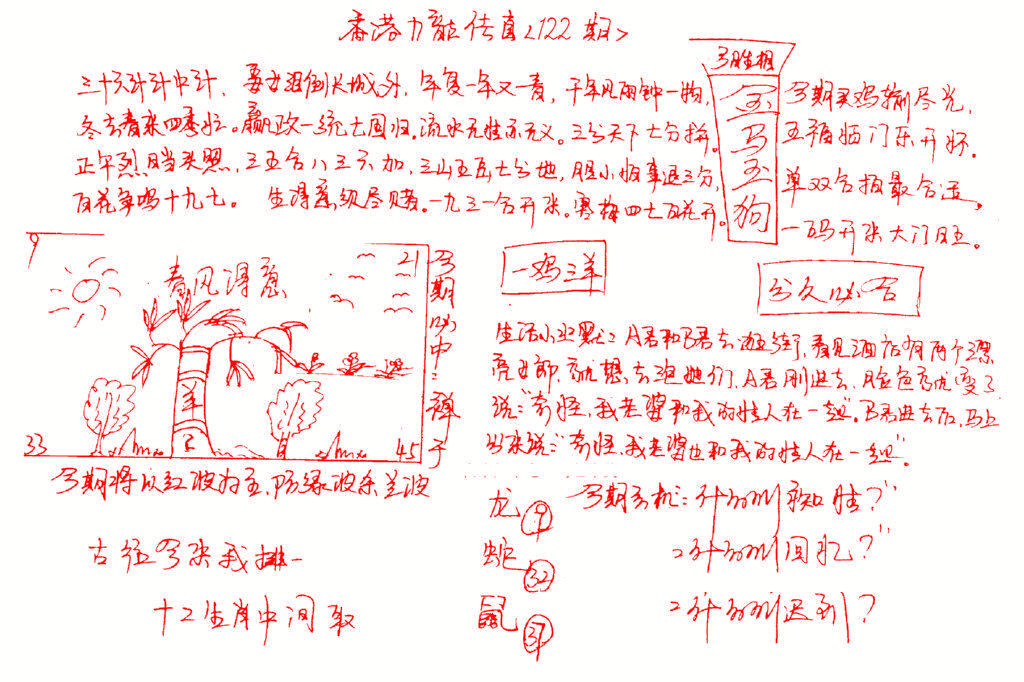 香港九龍传真<122期>
三十六计计中计、 年复一年又一春, 千年见雨钟一物,
冬去春来四季忙。赢政一统七国归。流水无情亦无义。三分天下七分拼。
正午烈日当头照, 三五合八三六加, 三山五岳七分地, 胆小怕事退三分,
百花争鸣十九七。 生得意须尽 。一九三一合开来。寒梅四七百花开。
今期生相
金
马
玉
狗
今期买鸡输尽光,
五福临门乐开怀。
单双合报最合适,
一码开来大门旺。
9
21
春风得意
羊
33
45
今期必中:弹子
今期将以红波为主,防绿波杀兰波
一鸡三羊
分久必合
生活小幽默: A君和B君去逛街, 看见酒店有两个漂
亮女郎, 就想去泡她们, A君刚进去, 脸色就变了
说:“奇怪, 我老婆和我的情人在一起”。B君进去后, 马上
出来说:“奇怪, 我老婆也和我的情人在一起”。
龙 ⑨
蛇 ㉜
鼠 ㊲
今期玄机: 相什么
回忆?”
迟到?
古往今来我排一
十二生肖中间取